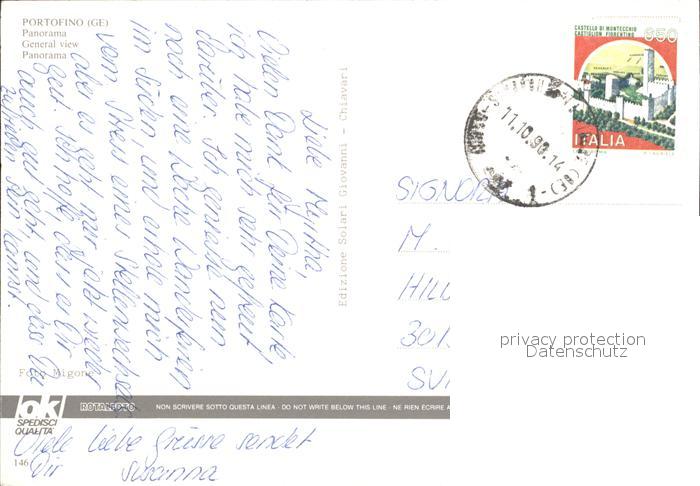 PORTOFINO (GE)
Panorama
General view
Panorama
Liebe Myrtha,
Vielen Dank für Deine Karte,
ich habe mich sehr gefreut
darüber. Ich geniesse nun
noch eine Woche Wanderferien
im Süden und erhole mich
vom Stress eines Stellenwechsels
aber es geht mir jetzt wieder
gut. Ich hoffe, dass es Dir
auch gut geht, und dass Du
zufrieden sein kannst.
Viele liebe Grüsse sendet
Dir Susanna
Foto Migone
Edizione Solari Giovanni - Chiavari
ok
SPEDISCI
QUALITÀ
ROTALFOTO
NON SCRIVERE SOTTO QUESTA LINEA - DO NOT WRITE BELOW THIS LINE - NE RIEN ÉCRIRE A
146
CASTELLO DI MONTECCHIO
CASTIGLION FIORENTINO
650
ITALIA
11.10.90.14
(GE)
SIGNORA
M.
HILL
301
SVI
privacy protection
Datenschutz